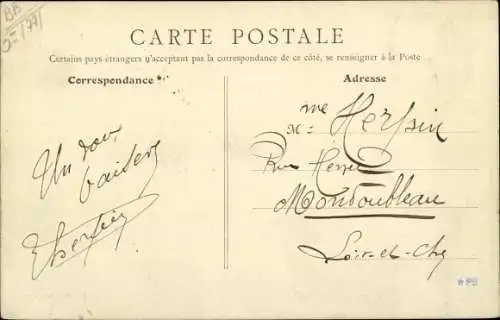 CARTE POSTALE
Certains pays étrangers n'acceptant pas la correspondance de ce côté, se renseigner à la Poste
Correspondance
Adresse
Un doux
baiser
Mme Herpin
Rue
Mondoubleau
Loir-et-Cher